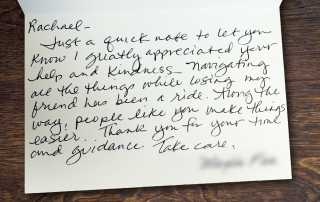 Rachael-
Just a quick note to let you
know I greatly appreciated your
help and kindness- Navigating
all the things while losing my
friend has been a ride. Along the
way, people like you make things
easier. Thank you for your time
and guidance. Take care,